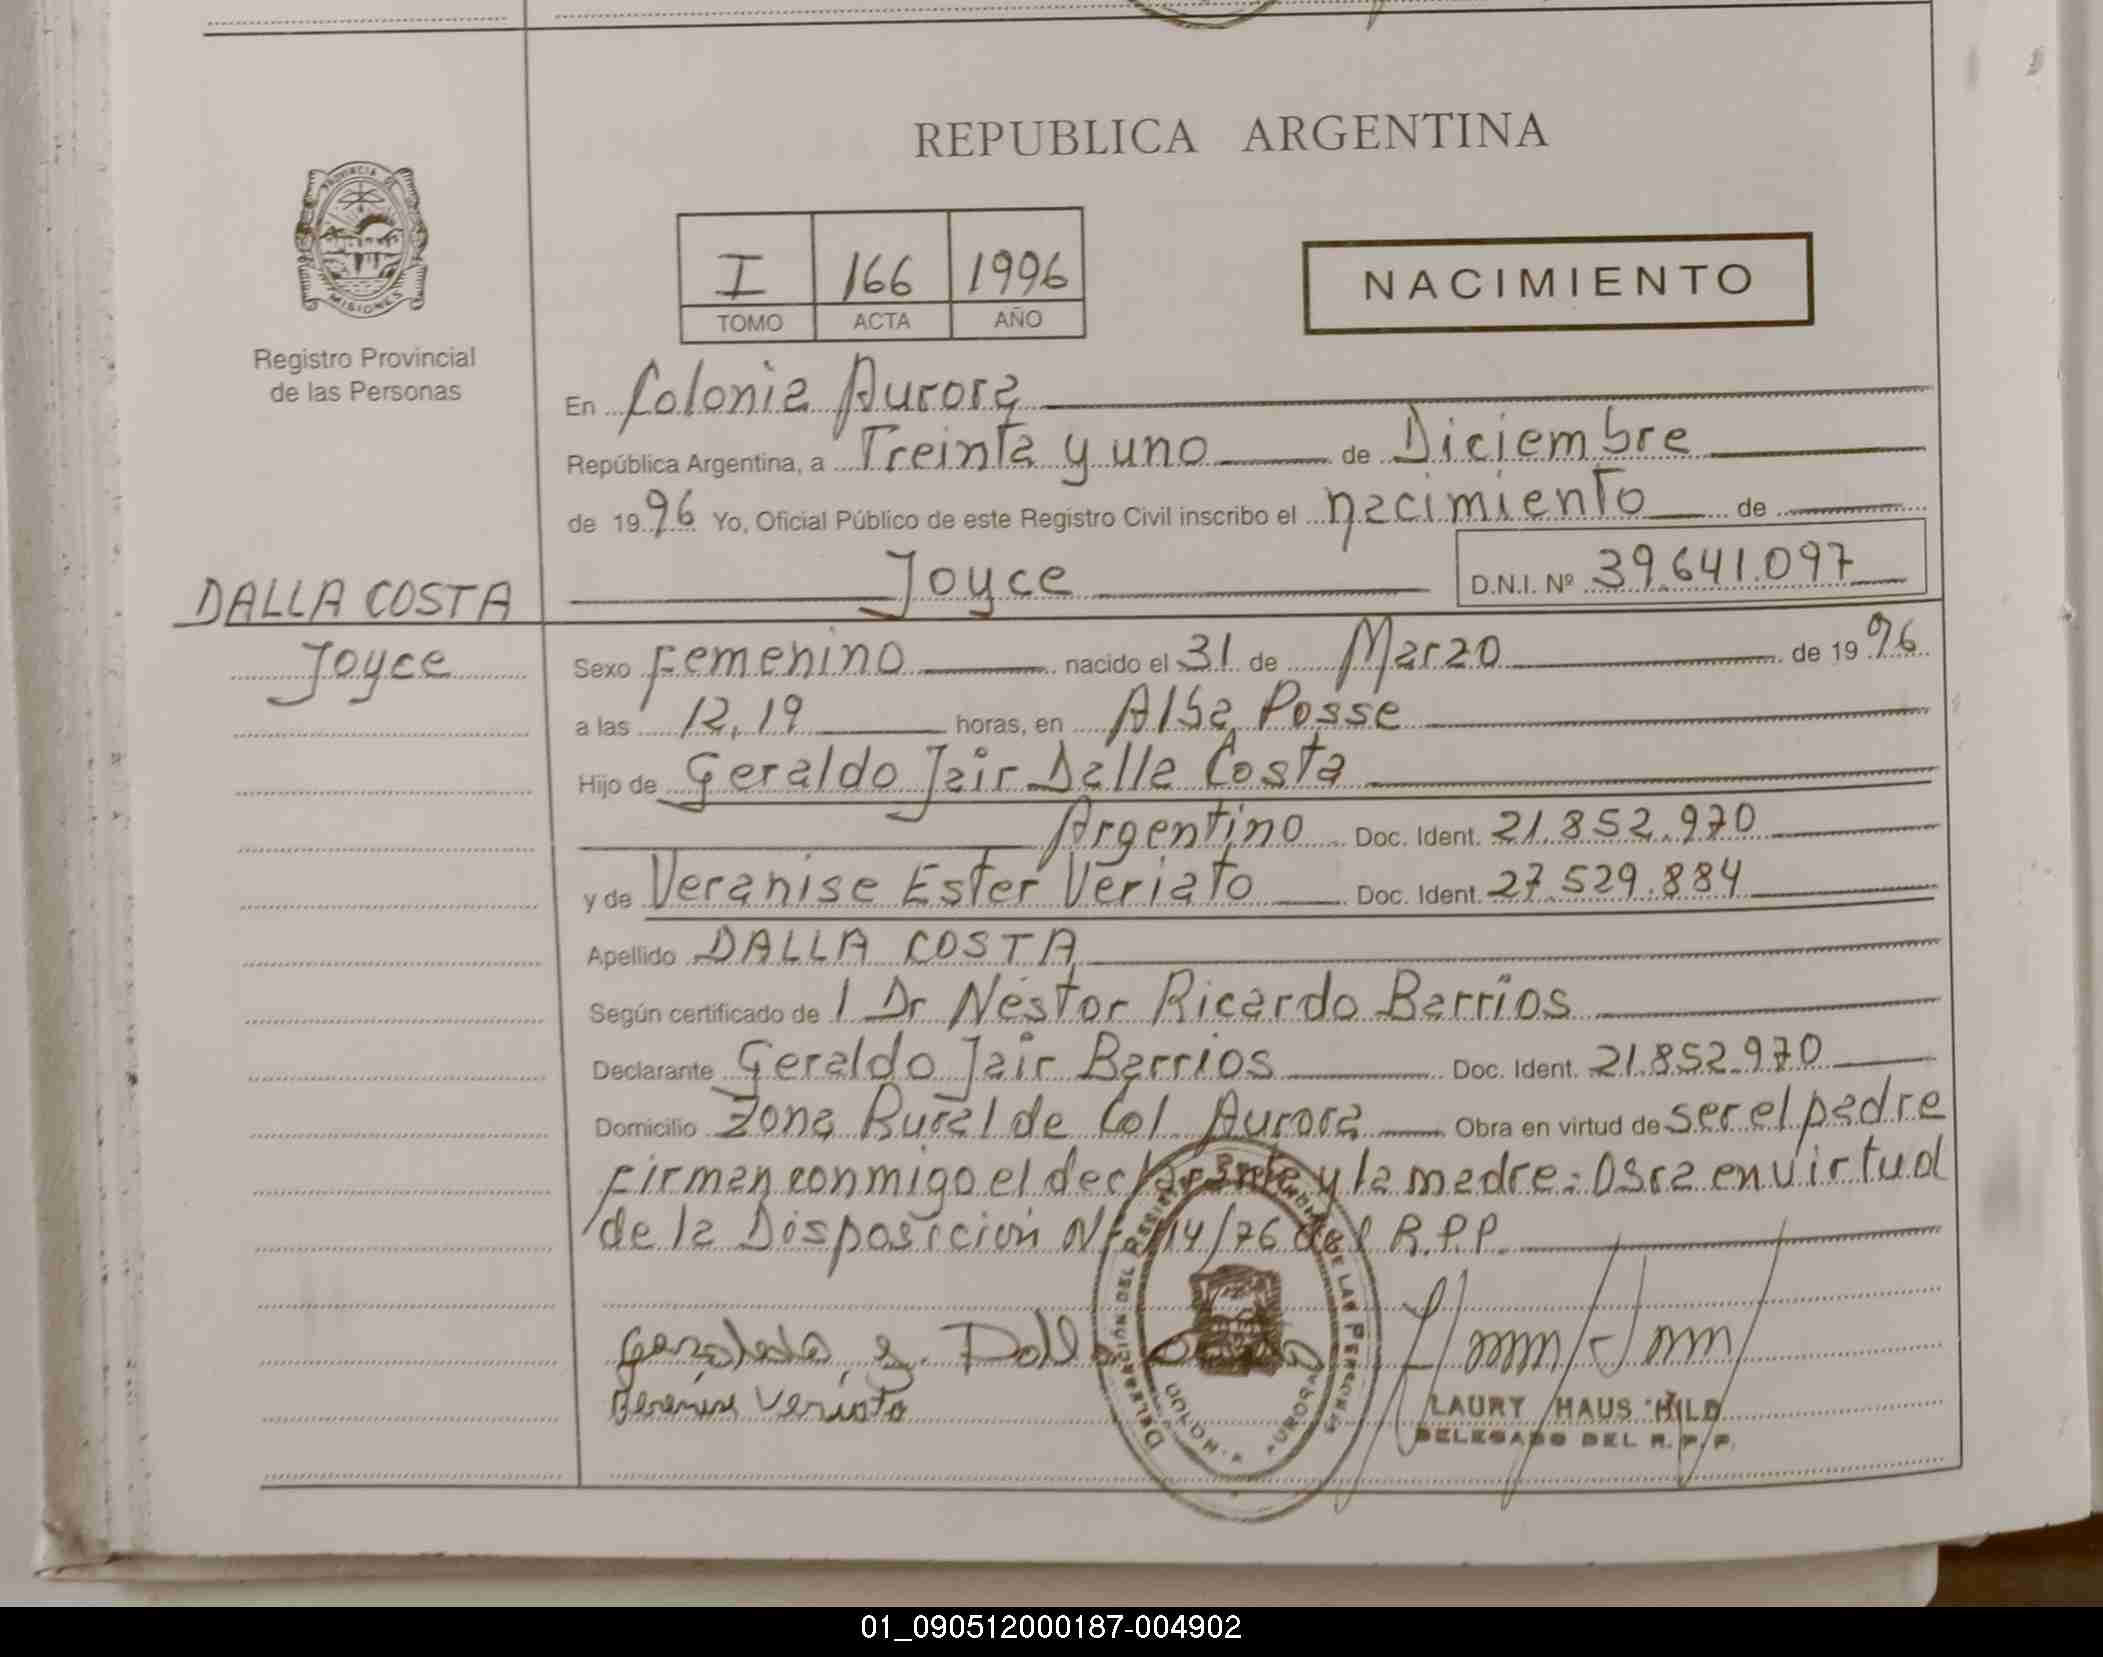 REPUBLICA ARGENTINA
PROVINCIA DE
MISIONES
Registro Provincial
de las Personas
I 166 1996
TOMO ACTA AÑO
NACIMIENTO
En Colonia Aurora
República Argentina, a Treinta y uno de Diciembre
de 1996 Yo, Oficial Público de este Registro Civil inscribo el nacimiento de
Joyce D.N.I. Nº 39.641.097
DALLA COSTA
Joyce
Sexo Femenino nacido el 31 de Marzo de 1996
a las 12,19 horas, en Alba Posse
Hijo de Geraldo Jair Dalla Costa
Argentino Doc. Ident. 21.852.970
y de Veranise Ester Veriato Doc. Ident. 27.529.884
Apellido DALLA COSTA
Según certificado de l Dr Nestor Ricardo Barrios
Declarante Geraldo Jair Barrios Doc. Ident. 21.852.970
Domicilio Zona Rural de Col. Aurora Obra en virtud de ser el padre
firman conmigo el declarante y la madre: Obra en virtud
de la Disposición Nº 114/76 del R.P.P.
Dall
Veriato
DELEGACIÓN DEL REGISTRO DE LAS PERSONAS
AURORA
LAURY HAUS HILD
DELEGADO DEL R.P.P.
01_090512000187-004902